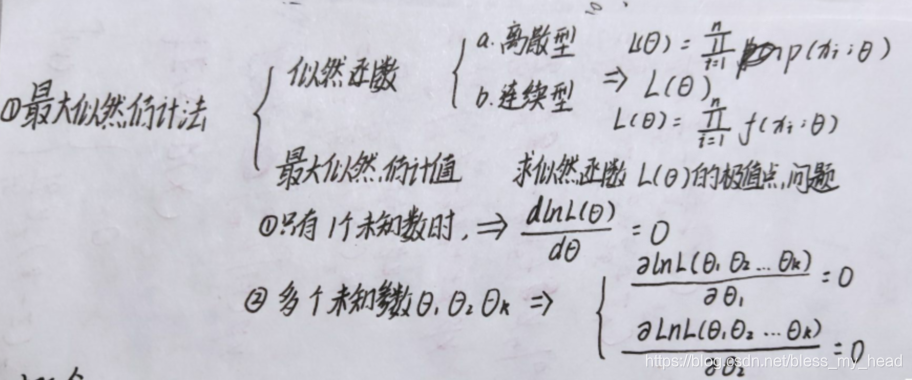 a.离散型 L(θ) = ∏_{i=1}^{n} p(x_i;θ)
似然函数
b.连续型 ⇒ L(θ)
①最大似然估计法
L(θ) = ∏_{i=1}^{n} f(x_i;θ)
最大似然估计值 求似然函数L(θ)的极值点问题
①只有1个未知数时, ⇒ dlnL(θ)/dθ = 0
②多个未知参数θ₁θ₂θₖ ⇒ ∂lnL(θ₁θ₂…θₖ)/∂θ₁ = 0
∂lnL(θ₁θ₂…θₖ)/∂θ₂ = 0
https://blog.csdn.net/bless_my_head